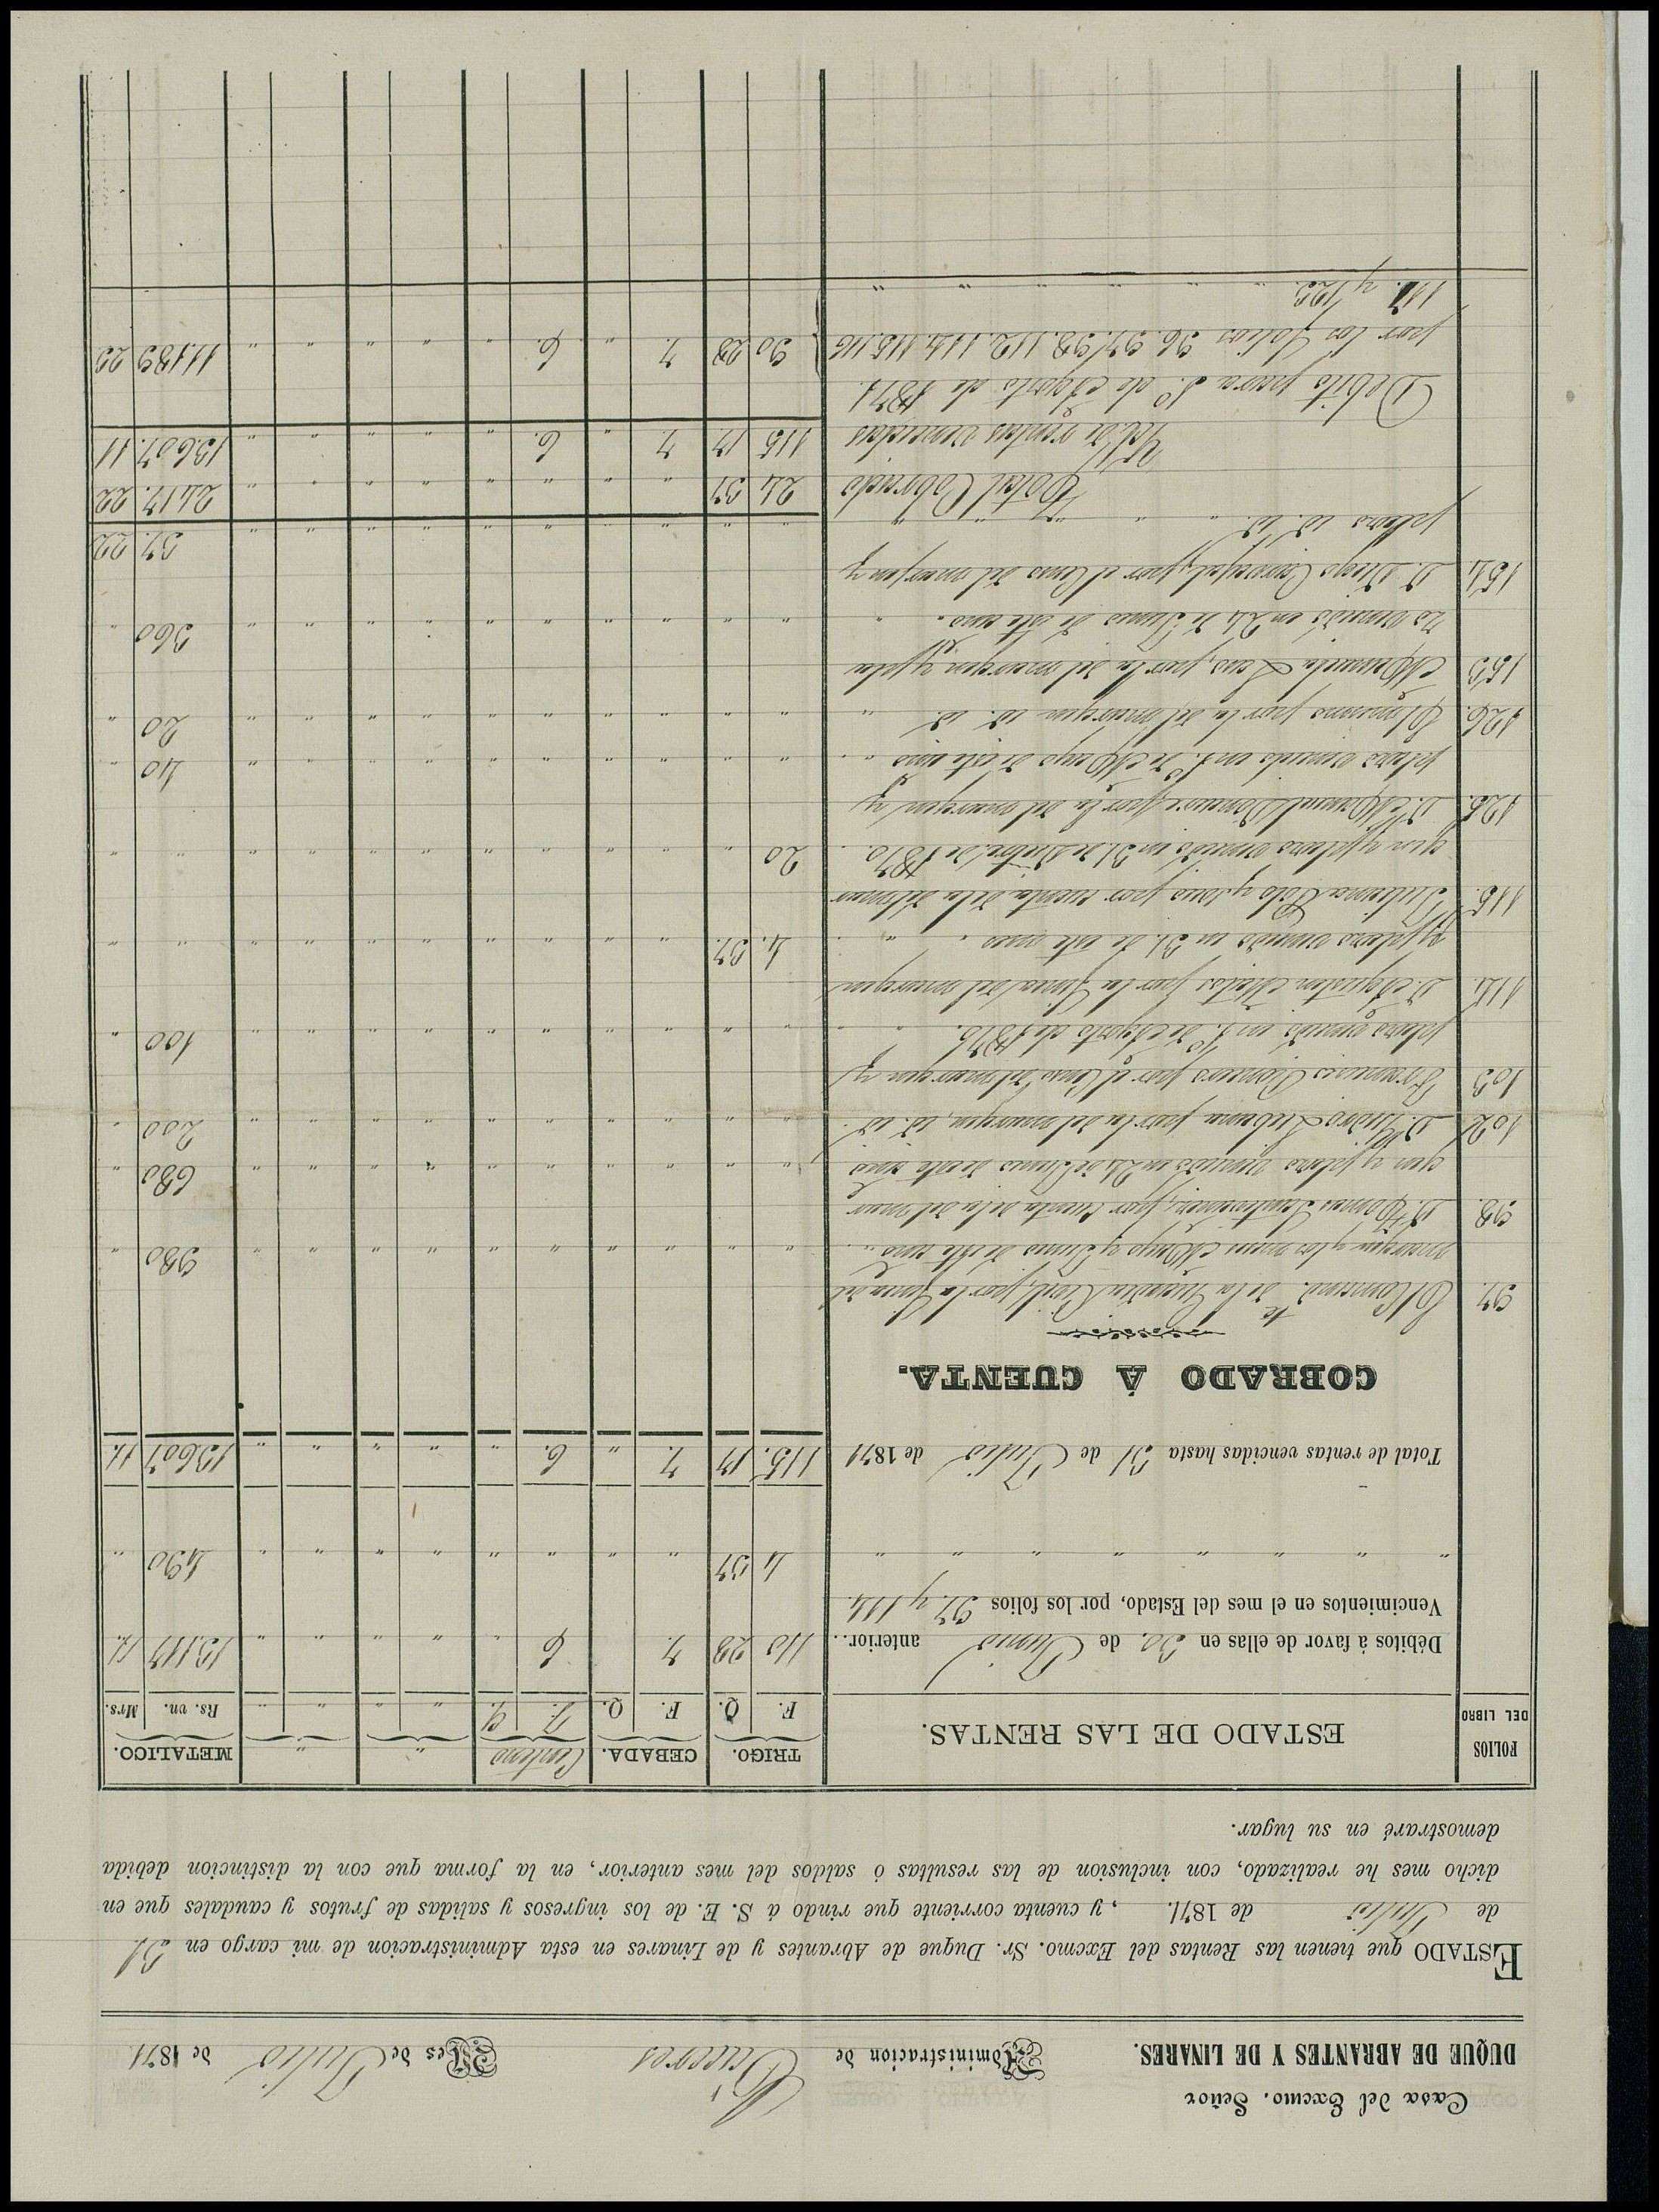 Casa del Excmo. Señor
DUQUE DE ABRANTES Y DE LINARES. Administracion de Cáceres Mes de Julio de 1871
ESTADO que tienen las Rentas del Excmo. Sr. Duque de Abrantes y de Linares en esta Administracion de mi cargo en 31
de Julio de 1871. , y cuenta corriente que rindo á S. E. de los ingresos y salidas de frutos y caudales que en
dicho mes he realizado, con inclusion de las resultas ó saldos del mes anterior, en la forma que con la distincion debida
demostraré en su lugar.
FOLIOS DEL LIBRO ESTADO DE LAS RENTAS. TRIGO. CEBADA. Centeno " " METALICO.
F. Q. F. Q. F. Q. " " " " Rs. vn. Mrs.
Débitos á favor de ellas en 30. de Junio anterior.. 110 28 7. 6 " " " " " 13.117 11.
Vencimientos en el mes del Estado, por los folios 97 y 114.
" " " " " " " " 4 37 " " " " " " " " 490 "
Total de rentas vencidas hasta 31 de Julio de 1871 115. 17 7. " 6. " " " " " 13607 11.
COBRADO Á CUENTA.
97. El Comand.te de la Guardia Civil, por la finca del
margen y los meses Mayo y Junio de este año " " " " " " " " " " " 980 "
98. D. Tomas Santibañez, por cuenta de la del mar
gen y plazo vencido en 24 de Junio de este año " " " " " " " " " " 680 "
102 D. Isidro Liebana por la del margen, id. id. " " " " " " " " " " 200 "
103 Francisco Rioneros por el Censo del margen y
plazo vencido en 1.º de Agosto de 1870. " " " " " " " " " " 100 "
114. D. Agustin Matos por la Finca del margen
y plazo vencido en 31. de este mes " " 4. 37. " " " " " " " " " "
115. Juliana Polo y Sons por cuenta de la del mar
gen y plazo vencido en 31 de Dicbre. de 1870. 20 " " " " " " " " " " "
125. D. Manuel Donaire, por la del margen y
plazo vencido en 1.º de Mayo de este año " " " " " " " " " " " 40 "
126. El mismo por la del margen id. id. " " " " " " " " " " " 20 "
153 Manuela Las, por la del margen y pla
zo vencido en 24 de Junio de este año. " " " " " " " " " " " 360 "
154. D. Diego Carvajal, por el Censo del margen y
plazo id. id. " " " " " " " " " " " " " " 37. 22
Total Cobrado 24 37 " " " " " " " " 2417. 22
Yd. de rentas vencidas 115 17. 7 " 6. " " " " " 13607. 11
Débito para 1.º de Agosto de 1871.
por los folios 96. 97. 98. 112. 114. 115. 116 90 28 7. " 6. " " " " " 11.189 23
117. y 123. " " " " " "